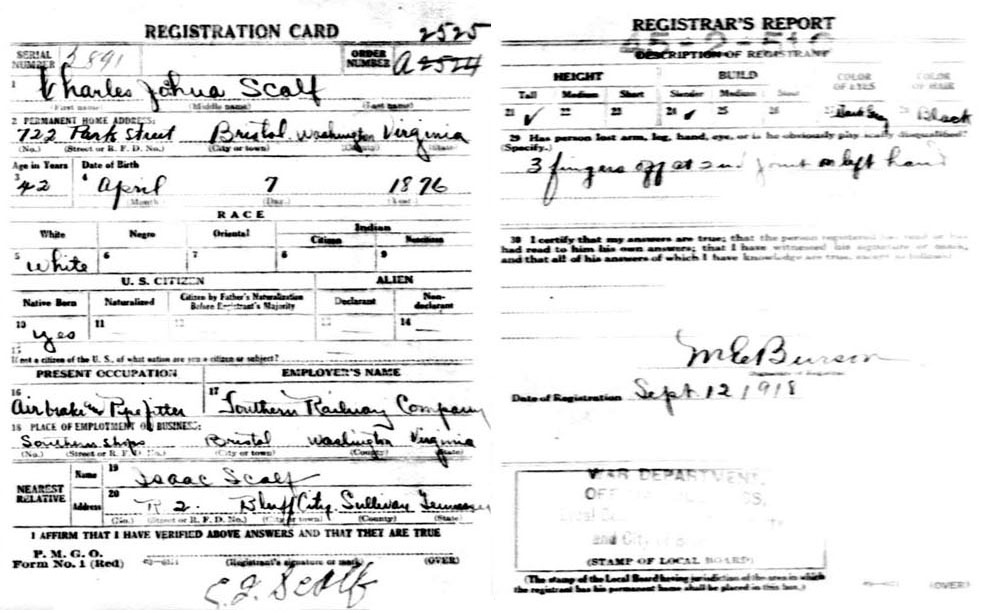 REGISTRATION CARD
2525
SERIAL NUMBER 2891
ORDER NUMBER A2524
1 Charles Johua Scalf
(First name) (Middle name) (Last name)
2 PERMANENT HOME ADDRESS:
722 Park Street Bristol Washington Virginia
(No.) (Street or R. F. D. No.) (City or town) (County) (State)
Age in Years Date of Birth
3 42 4 April 7 1876
(Month) (Day) (Year)
RACE
White Negro Oriental Indian
Citizen Noncitizen
5 White 6 7 8 9
U. S. CITIZEN ALIEN
Native Born Naturalized Citizen by Father's Naturalization Before Registrant's Majority Declarant Non-declarant
10 Yes 11 12 13 14
15
If not a citizen of the U. S., of what nation are you a citizen or subject?
PRESENT OCCUPATION EMPLOYER'S NAME
16 Air brake Pipefitter 17 Southern Railway Company
18 PLACE OF EMPLOYMENT OR BUSINESS:
Southern Shops Bristol Washington Virginia
(No.) (Street or R. F. D. No.) (City or town) (County) (State)
NEAREST RELATIVE
Name 19 Isaac Scalf
Address 20 R 2. Bluff City, Sullivan Tennessee
(No.) (Street or R. F. D. No.) (City or town) (County) (State)
I AFFIRM THAT I HAVE VERIFIED ABOVE ANSWERS AND THAT THEY ARE TRUE
P. M. G. O.
Form No. 1 (Red) (Registrant's signature or mark) (OVER)
C. J. Scalf
REGISTRAR'S REPORT
DESCRIPTION OF REGISTRANT
HEIGHT BUILD COLOR OF EYES COLOR OF HAIR
Tall Medium Short Slender Medium Stout
21 ✓ 22 23 24 ✓ 25 26 Black
29 Has person lost arm, leg, hand, eye, or is he obviously physically disqualified?
(Specify.)
3 fingers off at 2nd joint on left hand
30 I certify that my answers are true; that the person registered has read or has
had read to him his own answers; that I have witnessed his signature or mark,
and that all of his answers of which I have knowledge are true, except as follows:
Burson
Date of Registration Sept. 12 1918
WAR DEPARTMENT,
(STAMP OF LOCAL BOARD)
(The stamp of the Local Board having jurisdiction of the area in which
the registrant has his permanent home shall be placed in this box.)
(OVER)